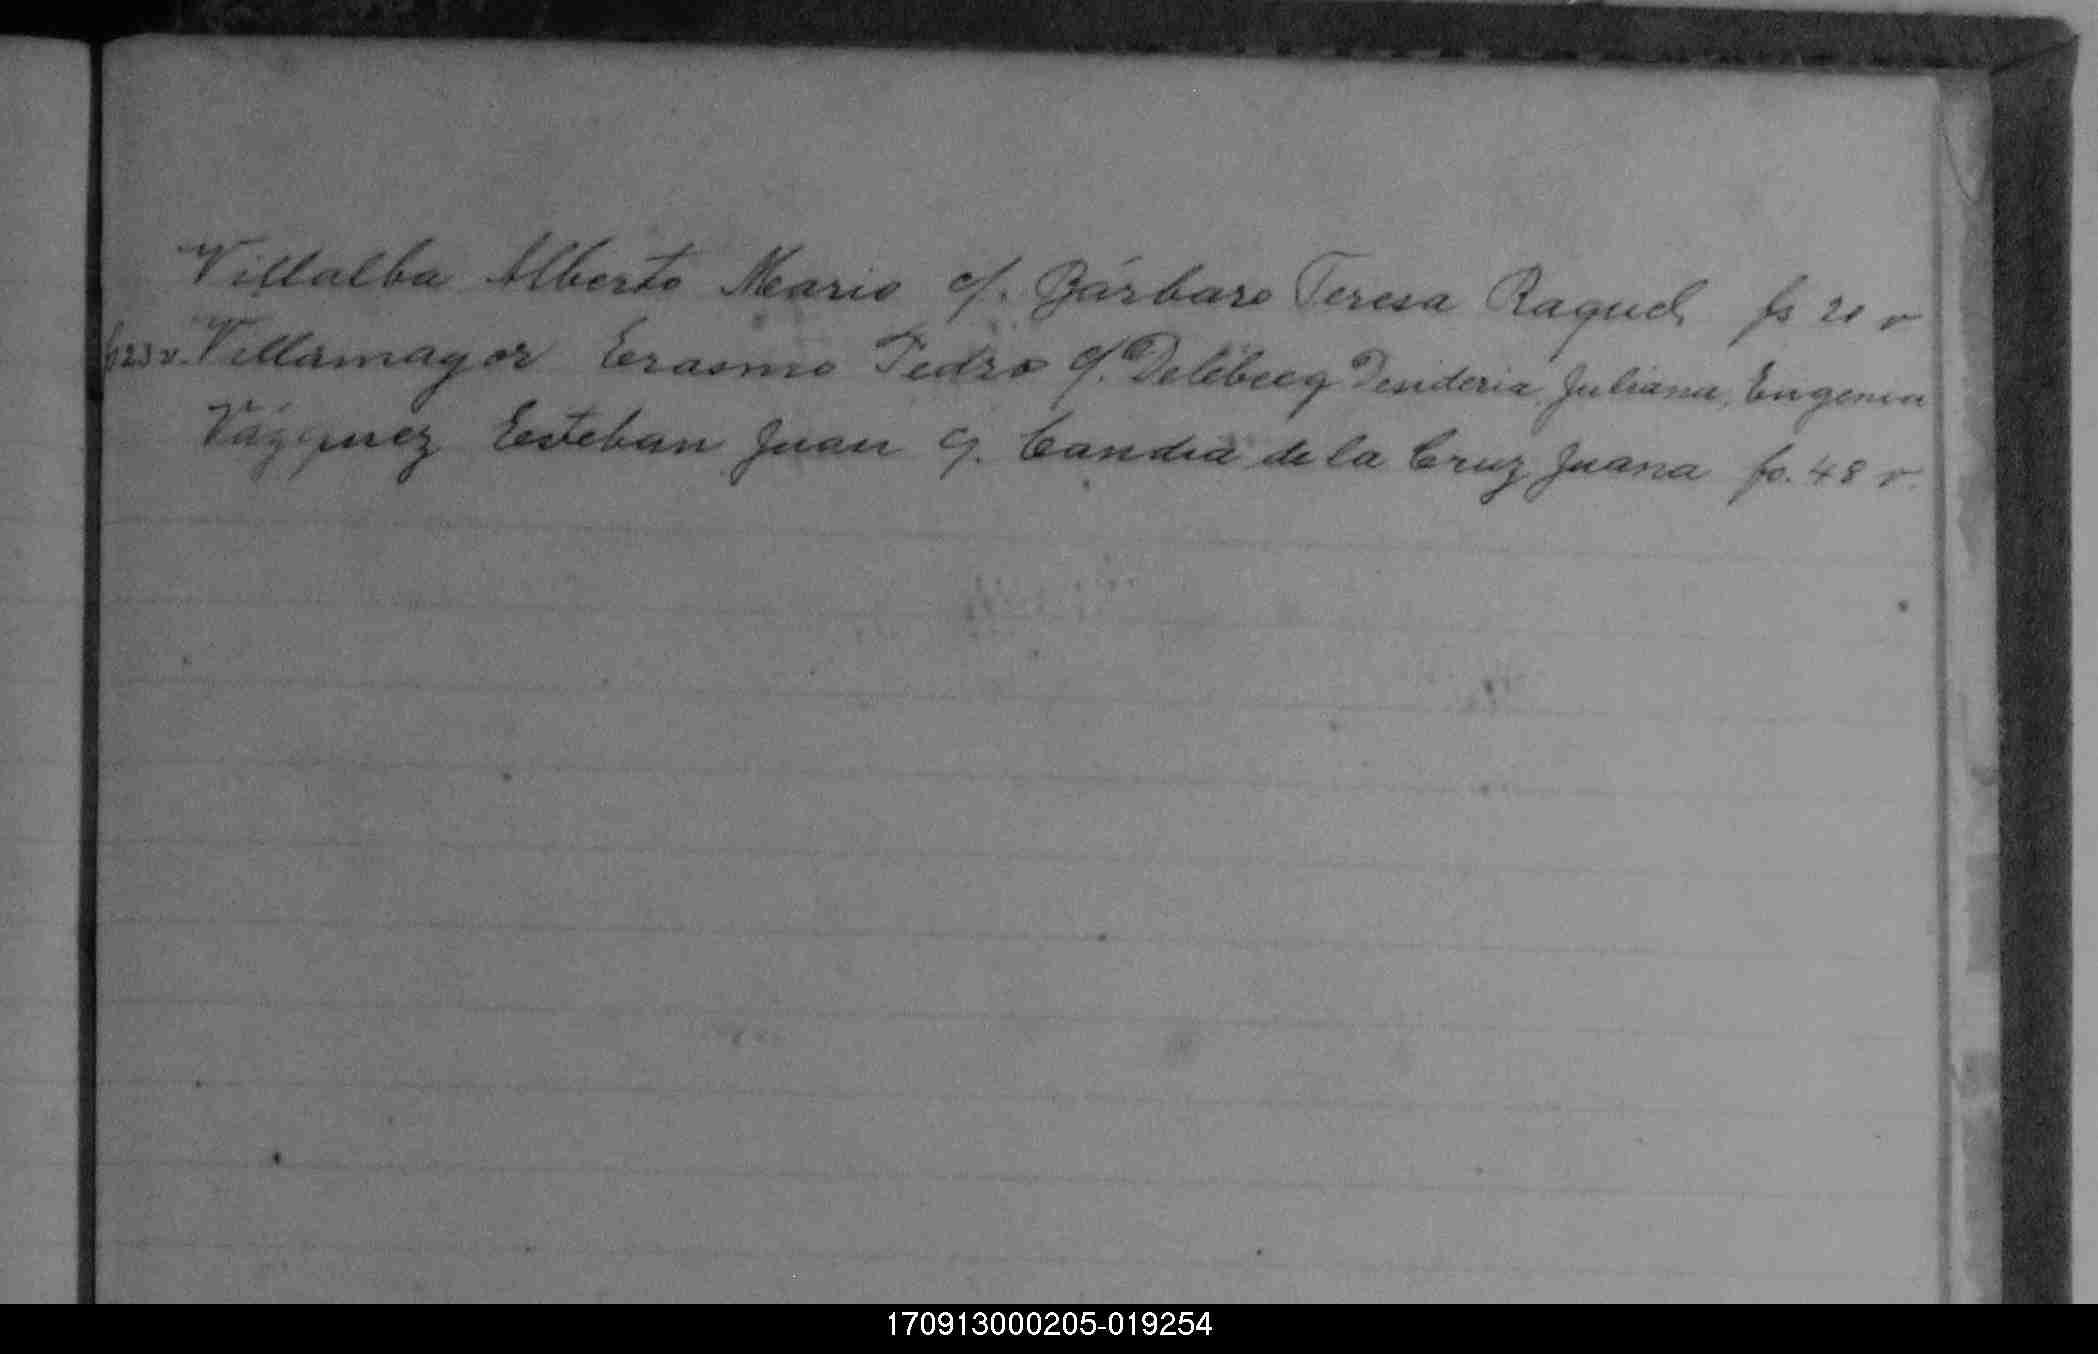 Villalba Alberto Mario c/. Bárbaro Teresa Raquel fs 21 v
f 23 v. Villamayor Erasmo Pedro c/. Delebecq Desideria, Juliana, Eugenia
Vázquez Esteban Juan c/. Candia de la Cruz Juana fo. 48 v.
170913000205-019254